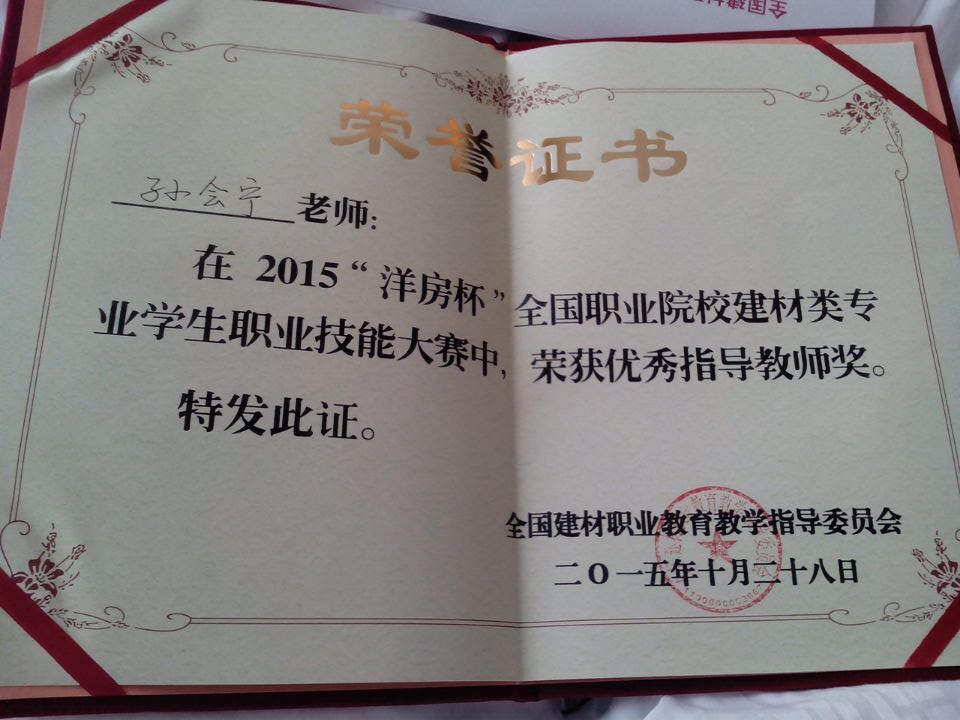 全国建材
荣誉证书
孙会宁 老师:
在 2015“洋房杯”全国职业院校建材类专
业学生职业技能大赛中,荣获优秀指导教师奖。
特发此证。
全国建材职业教育教学指导委员会
二O一五年十月二十八日